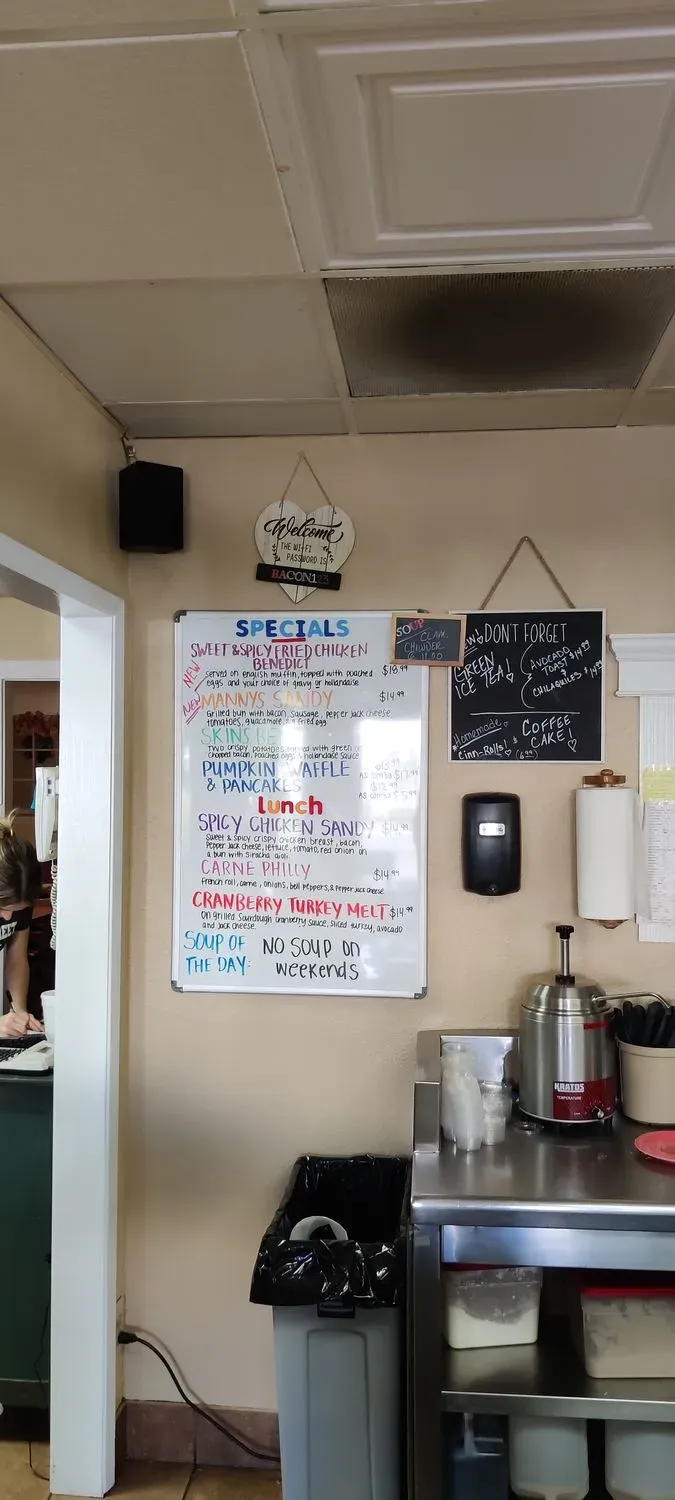 Welcome
THE WI-FI
PASSWORD IS
BACON123
SPECIALS
NEW
SWEET & SPICY FRIED CHICKEN
BENEDICT
served on english muffin, topped with poached
eggs and your choice of gravy or hollandaise
$18.99
New
MANNYS SANDY
$14.99
Grilled bun with bacon, sausage, pepper jack cheese,
tomatoes, guacamole, fried egg
SKINS
Two crispy potatoes topped with green
chopped bacon, poached eggs & hollandaise sauce
PUMPKIN WAFFLE
& PANCAKES
As combo
As combo
Lunch
SPICY CHICKEN SANDY
$14.99
Sweet & spicy crispy chicken breast, bacon,
Pepper Jack cheese, lettuce, tomato, red onion on
a bun with siracha aioli
CARNE PHILLY
$14.99
french roll, carne, onions, bell peppers, & pepper Jack cheese
CRANBERRY TURKEY MELT $14.99
On grilled Sourdough cranberry sauce, sliced turkey, avocado
and jack cheese.
SOUP OF
THE DAY:
NO SOUP ON
weekends
SOUP
CLAM
CHOWDER
DON'T FORGET
GREEN
ICE TEA!
AVOCADO
TOAST $14.99
CHILAQUILES $14.99
Homemade
Cinn-Rolls!
&
COFFEE
CAKE!
KRATOS
TEMPERATURE